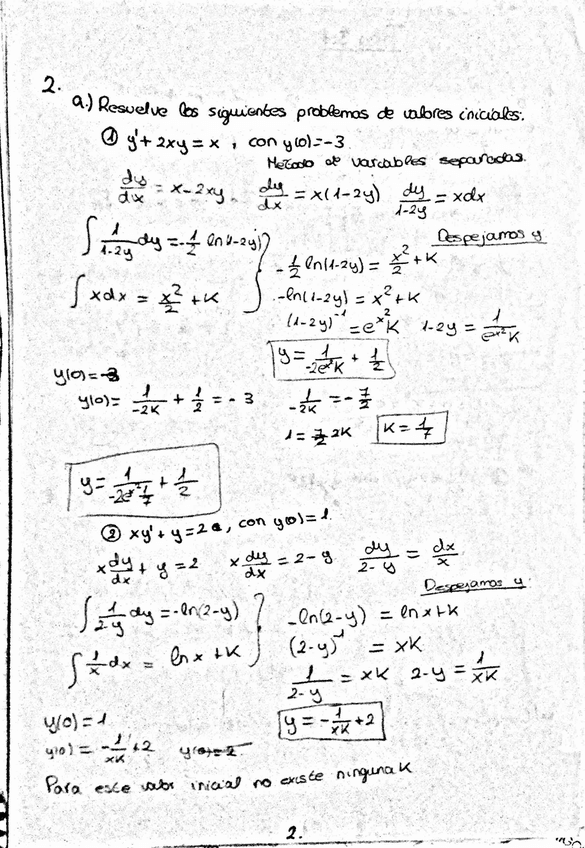 2.
a.) Resuelve los siguientes problemas de valores iniciales.
① y' + 2xy = x , con y(0) = -3
Método de variables separadas.
dy/dx = x - 2xy   dy/dx = x(1-2y)   dy/(1-2y) = xdx
Despejamos y
∫ 1/(1-2y) dy = -1/2 ln(1-2y)
∫ xdx = x²/2 + K
-1/2 ln(1-2y) = x²/2 + K
-ln(1-2y) = x² + K
(1-2y)⁻¹ = e^x² K   1-2y = 1/(e^x² K)
y = 1/(-2e^x² K) + 1/2
y(0) = -3
y(0) = 1/(-2K) + 1/2 = -3   1/(-2K) = -7/2
1 = 7/2 2K   K = 1/7
y = 1/(-2e^x² 1/7) + 1/2
② xy' + y = 2 , con y(0) = 1.
x dy/dx + y = 2   x dy/dx = 2 - y   dy/(2-y) = dx/x
Despejamos y
∫ 1/(2-y) dy = -ln(2-y)
∫ 1/x dx = ln x + K
-ln(2-y) = ln x + K
(2-y)⁻¹ = xK
1/(2-y) = xK   2-y = 1/(xK)
y = -1/(xK) + 2
y(0) = 1
y(0) = -1/(xK) + 2   y(0) = 2
Para este valor inicial no existe ninguna K
2.